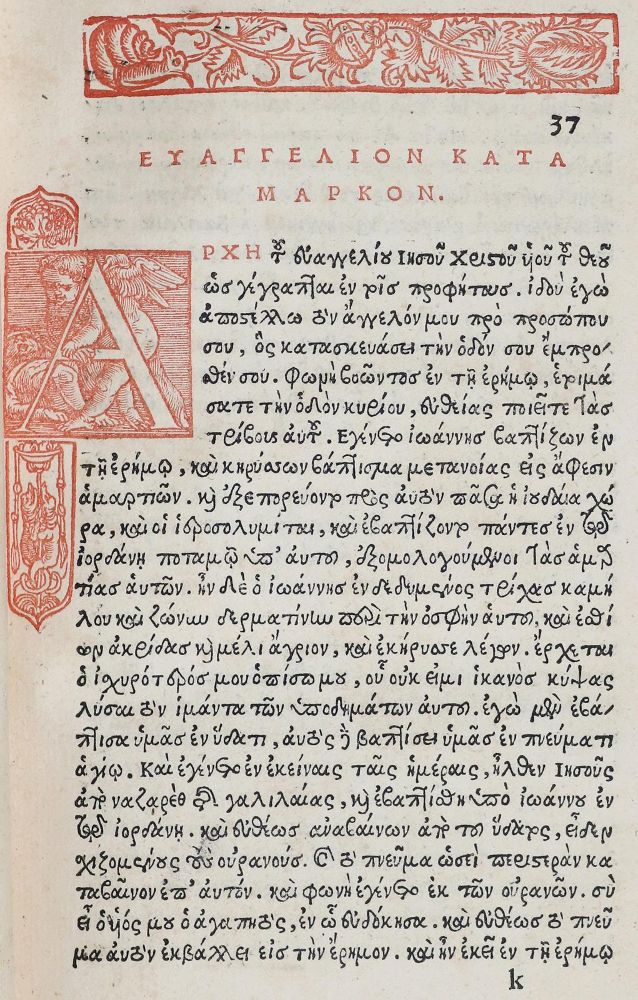 37
ΕΥΑΓΓΕΛΙΟΝ ΚΑΤΑ
ΜΑΡΚΟΝ.
ΑΡΧΗ τοῦ εὐαγγελίου Ιησοῦ Χριστοῦ ὑιοῦ τοῦ θεοῦ
ὡς γέγραπται ἐν τοῖς προφήταις. ἰδοὺ ἐγὼ
ἀποστέλλω τὸν ἄγγελόν μου πρὸ προσώπου
σου, ὃς κατασκευάσει τὴν ὁδόν σου ἔμπρο-
θέν σου. Φωνὴ βοῶντος ἐν τῇ ἐρήμῳ, ἑτοιμά
σατε τὴν ὁδὸν κυρίου, εὐθείας ποιεῖτε τὰς
τρίβους αὐτοῦ. Εγένετο ἰωάννης βαπτίζων ἐν
τῇ ἐρήμῳ, καὶ κηρύσσων βάπτισμα μετανοίας εἰς ἄφεσιν
ἁμαρτιῶν. καὶ ἐξεπορεύοντο πρὸς αὐτὸν πᾶσα ἡ ἰουδαία χώ
ρα, καὶ οἱ ἱεροσολυμίται, καὶ ἐβαπτίζοντο πάντες ἐν τῷ
ἰορδάνῃ ποταμῷ ὑπ' ἀυτου, ἐξομολογούμενοι τὰς ἁμαρ
τίας ἁυτῶν. ἦν δὲ ὁ ἰωάννης ἐνδεδυμένος τρίχας καμή
λου καὶ ζώνην δερματίνην περὶ τὴν ὀσφὴν ἁυτου, καὶ ἐσθί
ων ἀκρίδας καὶ μέλι ἄγριον, καὶ ἐκήρυσσε λέγων. ἔρχεται
ὁ ἰσχυρότερός μου ὀπίσω μου, οὗ οὐκ ειμι ἱκανὸς κύψας
λύσαι τὸν ἱμάντα τῶν ὑποδημάτων ἀυτου. ἐγὼ μὲν ἐβά-
πτισα ὑμᾶς ἐν ὕδατι, ἀυτὸς δὲ βαπτίσει ὑμᾶς ἐν πνεύματι
ἁγίῳ. Καὶ ἐγένετο ἐν ἐκείναις ταῖς ἡμέραις, ἦλθεν Ιησοῦς
ἀπὸ ναζαρὲθ τῆς γαλιλαίας, καὶ ἐβαπτίσθη ὑπὸ ἰωάννου ἐν
τῷ ἰορδάνῃ. καὶ εὐθέως ἀναβαίνων ἀπὸ του ὕδατος, εἶδεν
χιζομένους τοὺς οὐρανούς. καὶ τὸ πνεῦμα ὡσεὶ περιστερὰν κα
ταβαῖνον ἐπ' αυτόν. καὶ φωνὴ ἐγένετο ἐκ τῶν οὐρανῶν. σὺ
εἶ ὁ ὑιός μου ὁ ἀγαπητὸς, ἐν ᾧ εὐδόκησα. καὶ εὐθέως τὸ πνεῦ
μα ἀυτὸν ἐκβάλλει εἰς τὴν ἔρημον. καὶ ἦν ἐκεῖ ἐν τῇ ἐρήμῳ
k